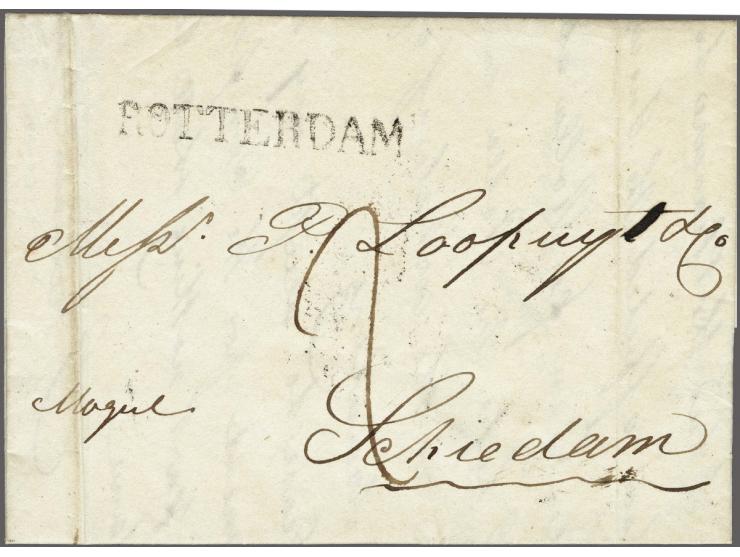 ROTTERDAM
Messrs. P. Loopuyt & Co
Mogul
Schiedam